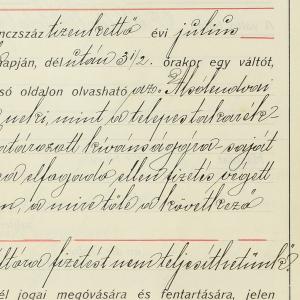 nczszáz tizenkettő évi julius
napján, dél után 3 1/2. órakor egy váltót,
só oldalon olvasható az. Alsólendvai
neki, mint a telepes takarék"
atározott kívánságára saját
a elfogadó, ellen fizetés végett
n, a mire tőle a következő
ltóra fizetést nem teljesithetünk"
él jogai megóvására és fentartására, jelen